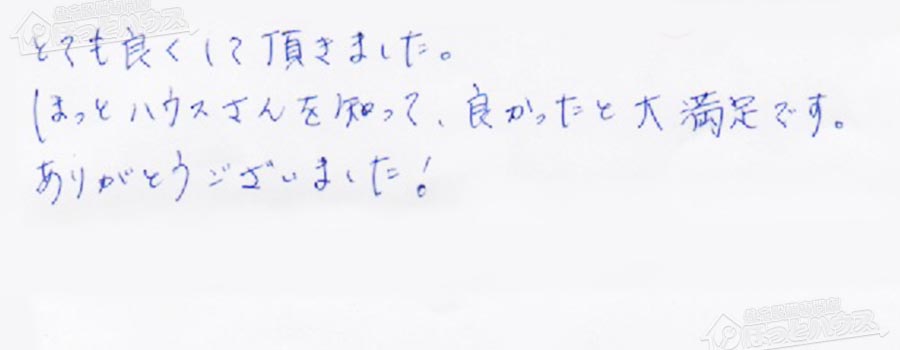 とても良くして頂きました。
ほっとハウスさんを知って、良かったと大満足です。
ありがとうございました!
ほっとハウス
ほっとハウス